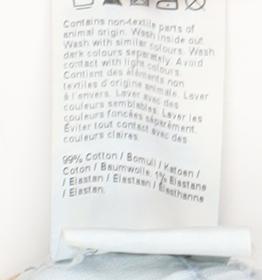 Contains non-textile parts of
animal origin. Wash inside out.
Wash with similar colours. Wash
dark colours separately. Avoid
contact with light colours.
Contient des éléments non
textiles d'origine animale. Laver
à l'envers. Laver avec des
couleurs semblables. Laver les
couleurs foncées séparément.
Éviter tout contact avec des
couleurs claires.
99% Cotton / Bomull / Katoen /
Coton / Baumwolle, 1% Elastane
/ Elastan / Elastaan / Elasthanne
/ Elastan.